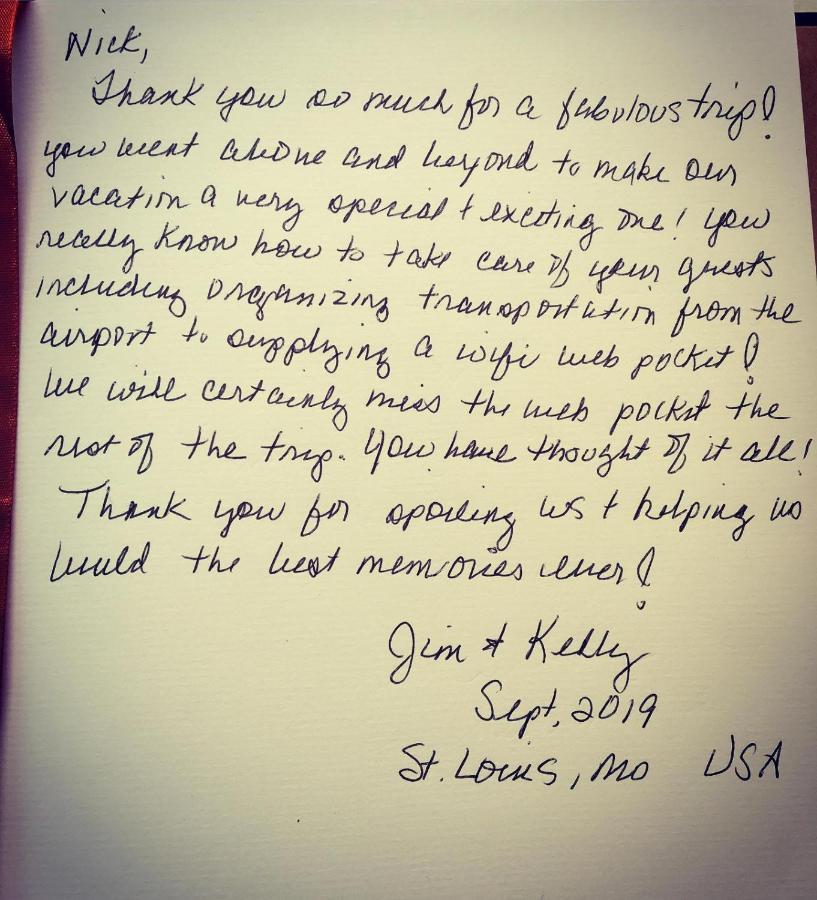 Nick,
Thank you so much for a fabulous trip!
you went above and beyond to make our
vacation a very special + exciting one! you
really know how to take care of your guests
including organizing transportation from the
airport to supplying a wifi web pocket!
We will certainly miss the web pocket the
rest of the trip. You have thought of it all!
Thank you for spoiling us + helping us
build the best memories ever!
Jim + Kelly
Sept, 2019
St. Louis, MO USA